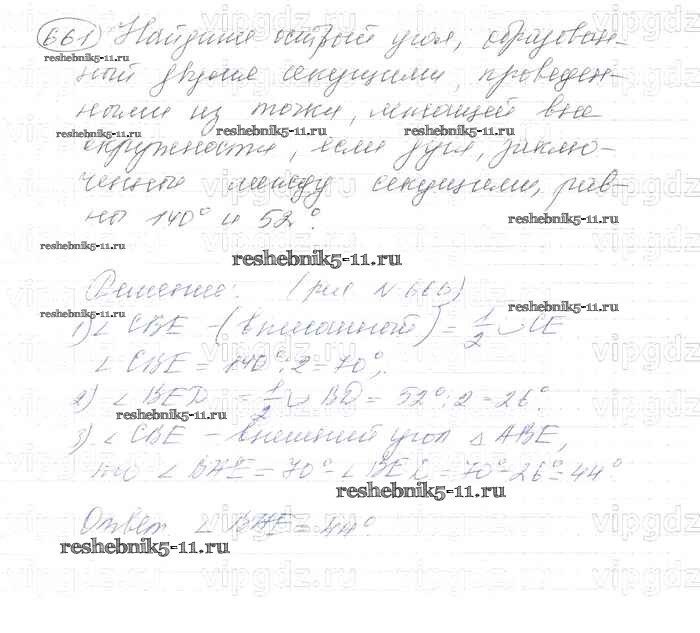 661) Найдите острый угол, образован-
reshebnik5-11.ru
ный двумя секущими, проведен-
ными из точки, лежащей вне
reshebnik5-11.ru reshebnik5-11.ru reshebnik5-11.ru
окружности, если дуги, заклю-
ченные между секущими, рав-
ны 140° и 52°?
reshebnik5-11.ru
reshebnik5-11.ru
reshebnik5-11.ru
Решение: (рис N 66б)
reshebnik5-11.ru reshebnik5-11.ru
1) ∠ CBE – (вписанный) = 1/2 ◡ CE
∠ CBE = 140° : 2 = 70°;
2) ∠ BED = 1/2 ◡ BD = 52° : 2 = 26°.
reshebnik5-11.ru
3) ∠ CBE – внешний угол △ ABE,
то ∠ BAE = 70° - ∠ BED = 70° - 26° = 44°
reshebnik5-11.ru
Ответ ∠ BAE = 44°.
reshebnik5-11.ru